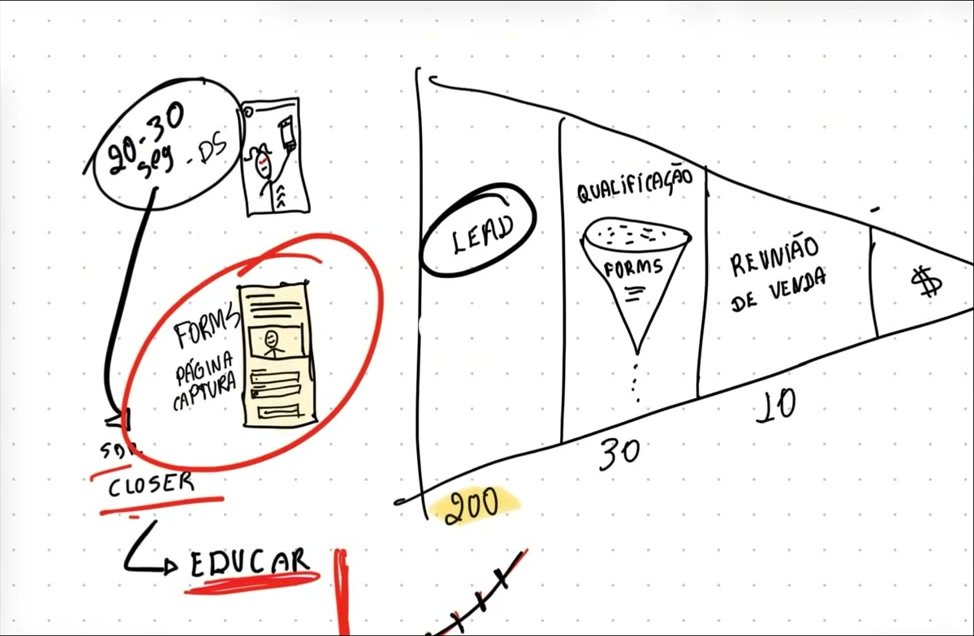 20-30
seg - DS
FORMS
PÁGINA
CAPTURA
SDR
CLOSER
EDUCAR
LEAD
QUALIFICAÇÃO
FORMS
REUNIÃO
DE VENDA
$
200
30
10